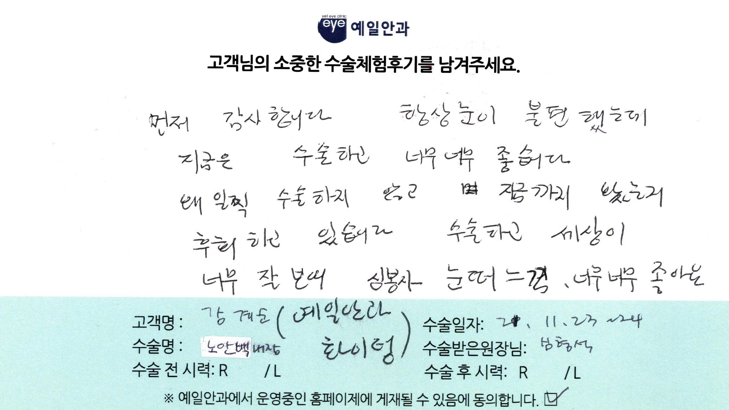 eye 예일안과
고객님의 소중한 수술체험후기를 남겨주세요.
먼저 감사합니다 항상 눈이 불편했는데
지금은 수술하고 너무너무 좋습니다
왜 일찍 수술하지 않고 지금까지 왔는지
후회하고 있습니다 수술하고 세상이
너무 잘 보여 심봉사 눈떠 느낌, 너무너무 좋아요
고객명: 강계순 (예일안과 화이팅)
수술일자: 21. 11. 23 ~24
수술명: 노안백내장
수술받은원장님:
수술 전 시력: R /L
수술 후 시력: R /L
※ 예일안과에서 운영중인 홈페이제에 게재될 수 있음에 동의합니다. ☑